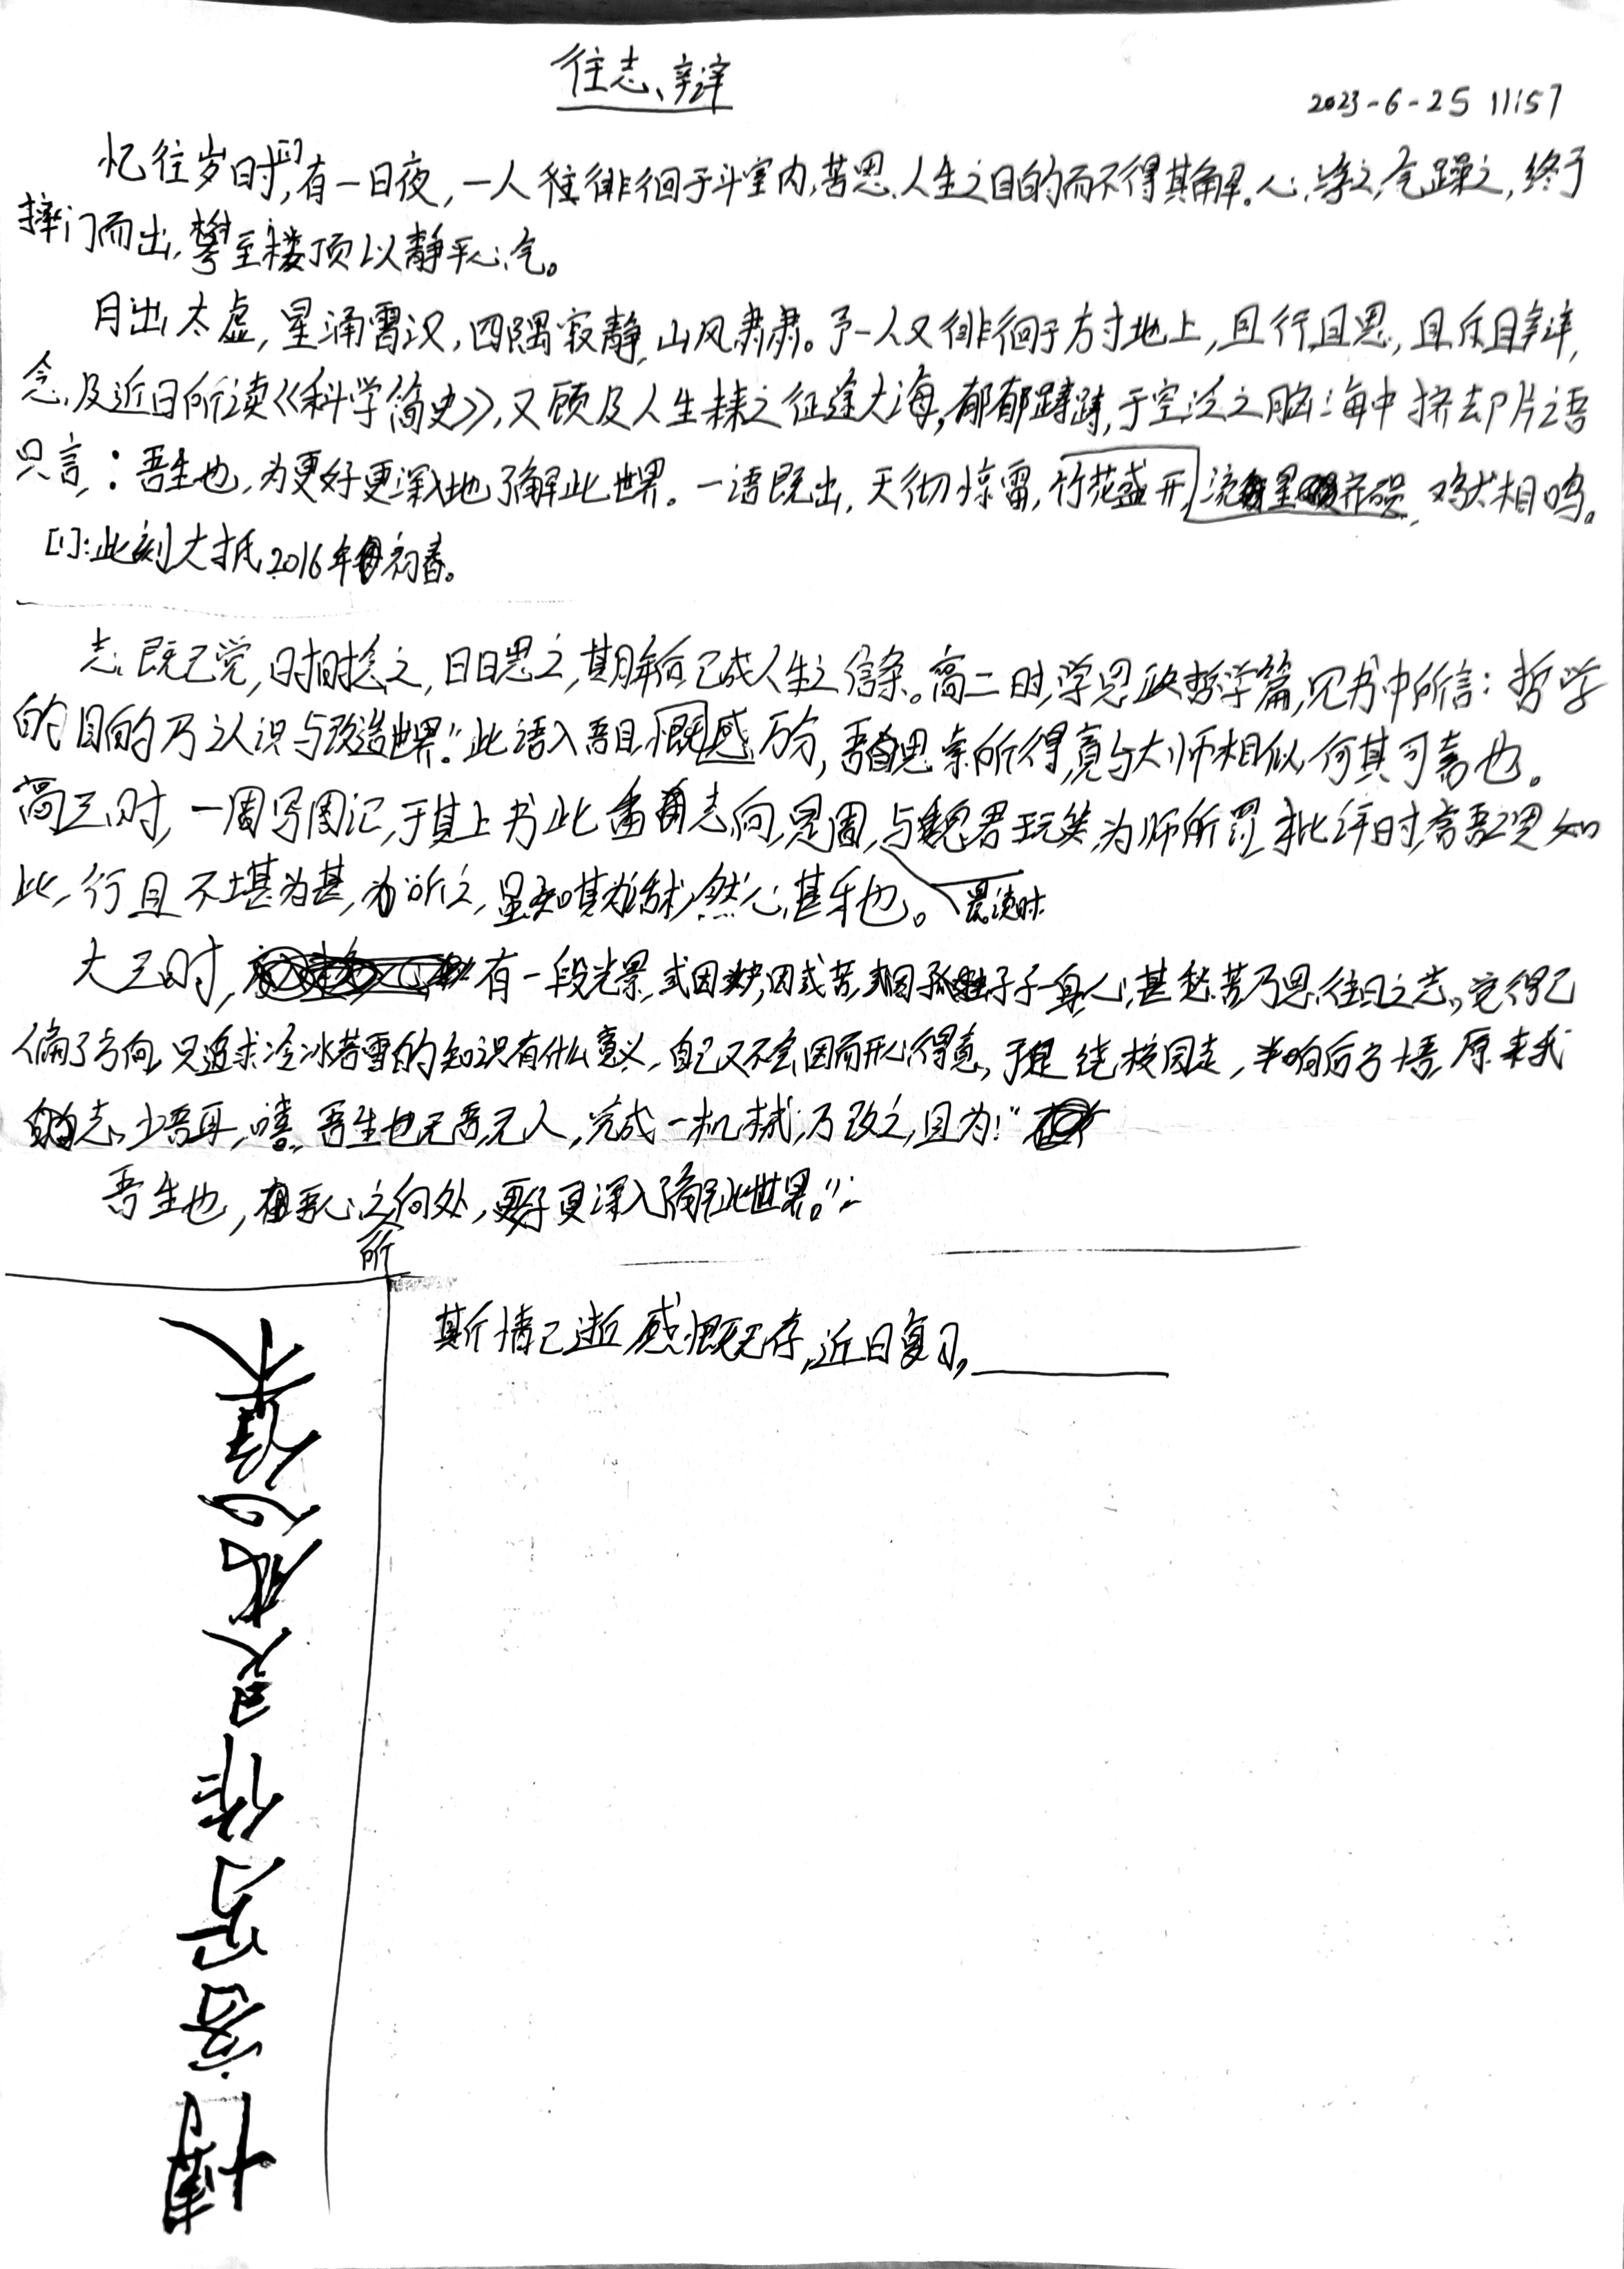 往志辩
2023-6-25 11:57
忆往岁时[1],有一日夜,一人徘徊于斗室内,苦思人生之目的而不得其解。心浮之,气躁之,终于
摔门而出,攀至楼顶以静平心气。
月出太虚,星涌霄汉,四隅寂静,山风肃肃。予一人又徘徊于方寸地上,且行且思,且反且辩,
念及近日所读《科学简史》,又顾及人生未来之征途大海,郁郁踌躇,于空泛之脑海中挤却片语
只言:吾生也,为更好更深入地了解此世界。一语既出,天彻惊雷,竹花盛开,流星,鸡犬相鸣。
[1]:此刻大抵2016年初春。
志既已觉,时时念之,日日思之,期年后已成人生之信条。高二时,学思政哲学篇,见书中所言:哲学
的目的乃认识与改造世界."此语入吾目,慨感万分,吾自思索所得竟与大师相似,何其可喜也。
高三时,一周写周记,于其上书此番志向,是周,与魏君玩笑,为师所罚,批评时,言吾思如
此,行且不堪为甚,为听之,然心甚乐也。晨读时
大三时,有一段光景,或因因或苦,或因孑孑一身,心甚愁苦,乃思往日之志,觉得已
偏了方向,只追求冷冰若雪的知识有什么意义,自己又不会因而形心得意,于是绕校园走,半晌后方悟,原来我
的志,上语耳,嘻,吾生也无吾无人,完成一机械,乃改之,且为:"
吾生也,在我心之所向处,更好更深入了解此世界。"
其斯情已逝,感慨无存,近日复习,
博客写作灵感收集